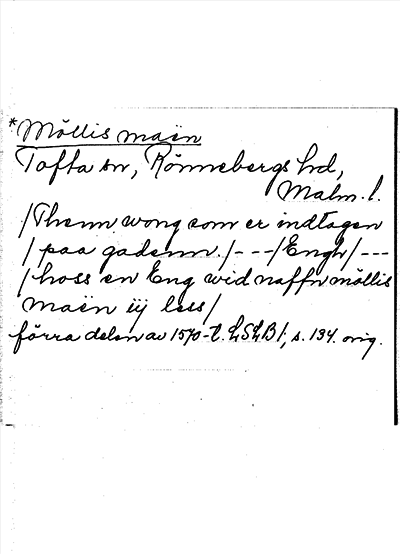 *Möllis maën
Tofta sn, Rönnebergs hd,
Malm. l.
/Thenn wong som er indtagen
/paa gadenn./---/Engh/---
/hoss en Eng wid naffn möllis
maën iij less/
förra delen av 1570-t. LSLB 1, s. 134. orig.